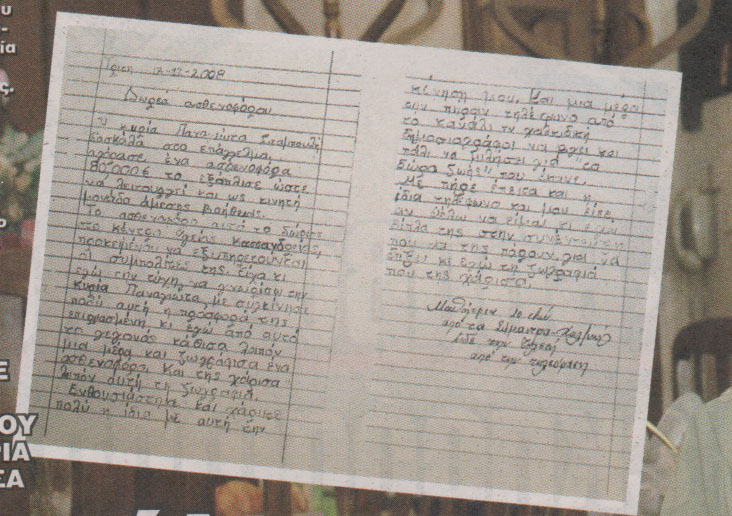 υ
-
ία
ς.
ο
Ε
ΟΥ
ΡΙΑ
ΣΑ
Τρίτη 2009
Δωρεά ασθενοφόρου
Η κυρία Παναγιώτα
δασκάλα στο επάγγελμα,
αγόρασε ένα ασθενοφόρο
80.000€ το εξόπλισε ώστε
να λειτουργεί και ως κινητή
μονάδα άμεσης βοήθειας.
Το ασθενοφόρο αυτό το δώρισε
στο κέντρο Υγείας Κασσανδρείας,
προκειμένου να εξυπηρετούνται
οι συμπολίτες της. Είχα κι
εγώ την τύχη να γνωρίσω την
κυρία Παναγιώτα, με συγκίνησε
πολύ αυτή η προσφορά της
κι εγώ από αυτό
το γεγονός κάθισα λοιπόν
μια μέρα και ζωγράφισα ένα
ασθενοφόρο. Και της χάρισα
λοιπόν αυτή τη ζωγραφιά.
Ενθουσιάστηκε και χάρηκε
πολύ η ίδια με αυτή την
κίνησή μου. Και μια μέρα
την πήραν τηλέφωνο από
το κανάλι
δημοσιογράφοι να έρθει και
πάλι να μιλήσει για "το
δώρο ζωής" που έκανε.
Με πήρε έπειτα και η
ίδια τηλέφωνο και μου είπε,
αν θέλω να είμαι κι εγώ
δίπλα της στην συνέντευξη
που θα της πάρουν, για να
δείξω κι εγώ τη ζωγραφιά
που της χάρισα.
Μαθήτρια
από τα Σήμαντρα Χαλκιδικής
είδε την
από την τηλεόραση